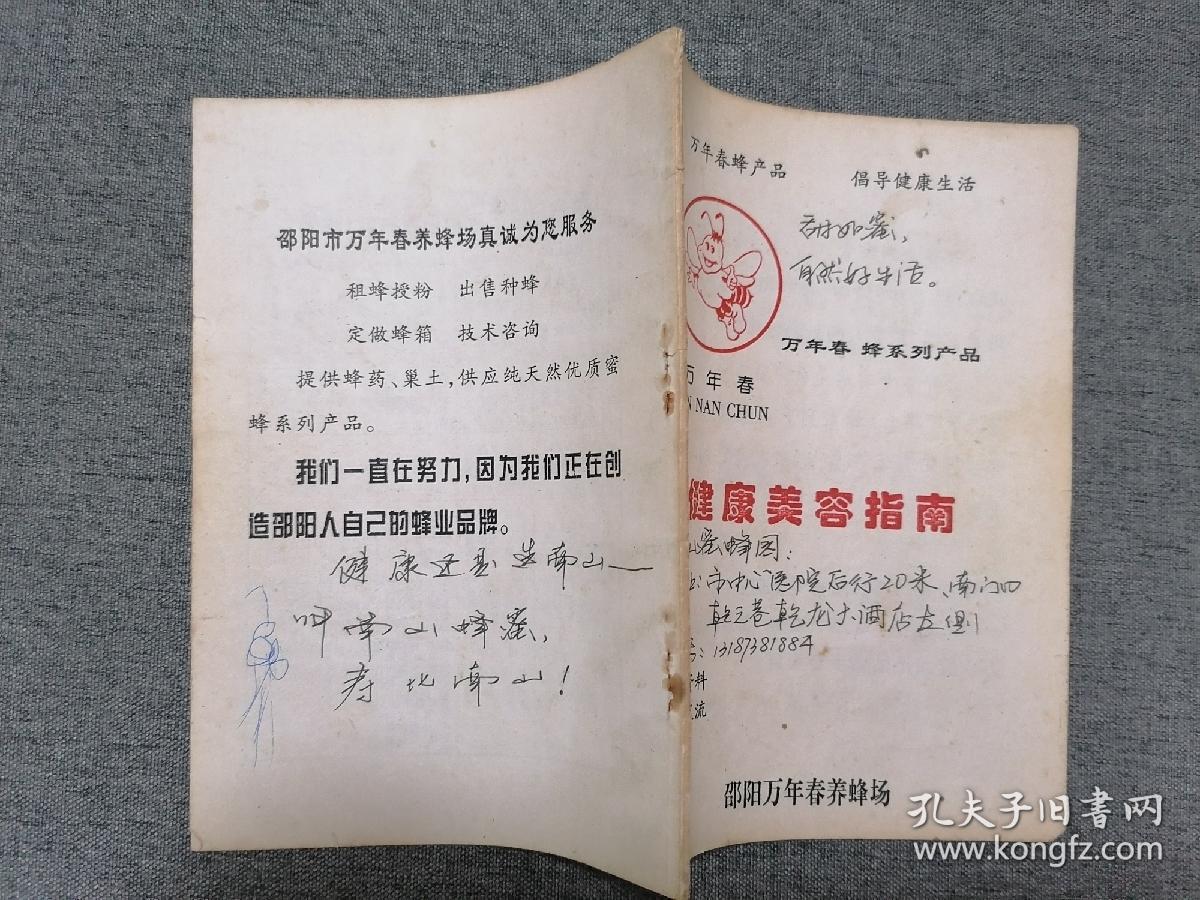 邵阳市万年春养蜂场真诚为您服务
租蜂授粉 出售种蜂
定做蜂箱 技术咨询
提供蜂药、巢土,供应纯天然优质蜜
蜂系列产品。
我们一直在努力,因为我们正在创
造邵阳人自己的蜂业品牌。
健康还是选南山——
呷南山蜂蜜,
寿比南山!
万年春蜂产品 倡导健康生活
甜如蜜,
自然好生活。
万年春 蜂系列产品
万年春
NAN CHUN
健康美容指南
蜜蜂园:
市中心医院后行20米、南门口
乾元巷乾龙大酒店左侧
号:13187381884
料
流
邵阳万年春养蜂场
孔夫子旧书网
www.kongfz.com